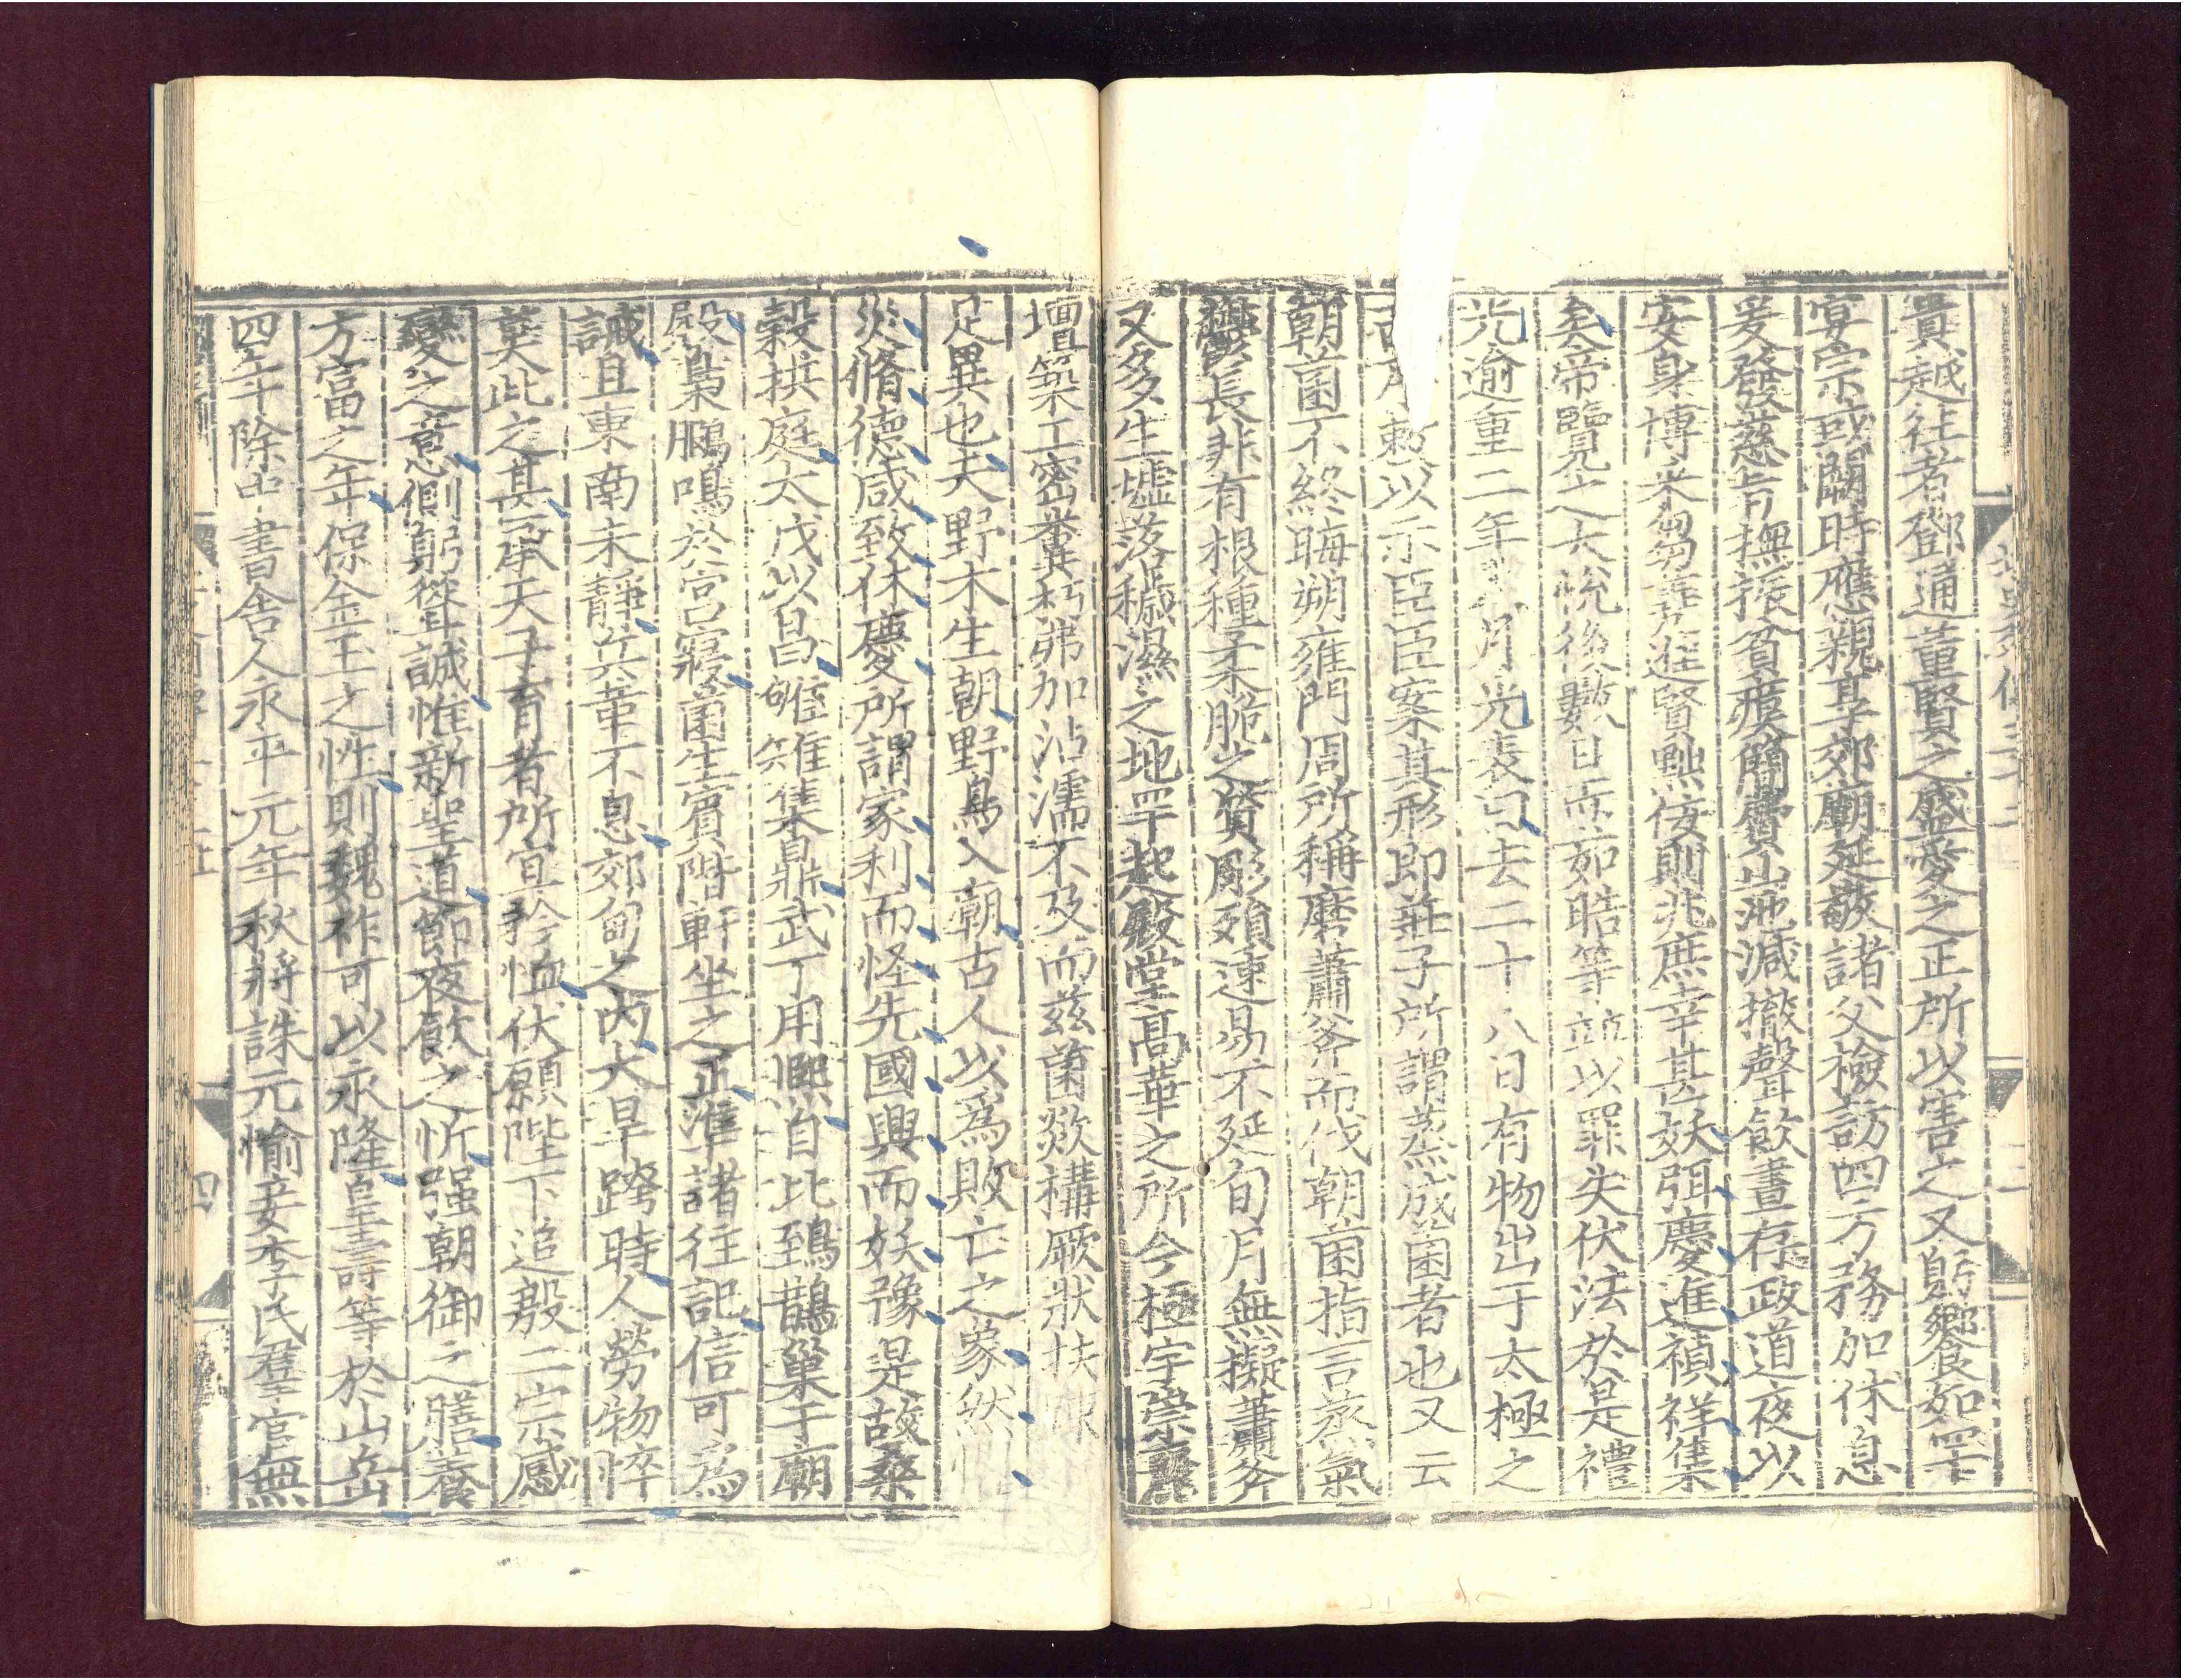 貴越往者鄧通董賢之盛愛之正所以害之又躬饗如罕
宴宗或闕時應親享郊廟延敬諸父檢訪四方務加休息
爰發慈旨撫振貧瘼簡費山池減撤聲飲晝存政道夜以
安身博采芻蕘進賢黜佞則兆庶幸甚妖弭慶進禎祥集
矣帝覽之大悅後數日而茹皓等竝以罪失伏法於是禮
光逾重二年 月光表曰去二十八日有物出于太極之
敕以示臣臣案其形即莊子所謂蒸成菌者也又云
朝菌不終晦朔雍門周所稱磨蕭斧而伐朝菌指言蒸氣
鬱長非有根種柔脆之質彫殞速易不延旬月無擬蕭斧
又多生墟落穢濕之地罕起殿堂高華之所今極宇崇麗
壇築工密糞朽弗加沾濡不及而茲菌欻構厥狀扶
足異也夫野木生朝野鳥入朝古人以爲敗亡之象然
災脩德咸致休慶所謂家利而怪先國興而妖豫是故桑
穀拱庭太戊以昌雊雉集鼎武丁用熙自比鵄鵲巢于廟
殿梟鵩鳴於宮寢菌生賓階軒坐之正準諸往記信可爲
誡且東南未靜兵革不息郊甸之內大旱跨時人勞物悴
莫此之甚承天子育者所宜矜恤伏願陛下追殷二宗感
變之意側躬聳誠惟新聖道節夜飲之忻强朝御之膳養
方富之年保金玉之性則魏祚可以永隆皇壽等於山岳
四年除中書舍人永平元年秋將誅元愉妾李氏羣官無